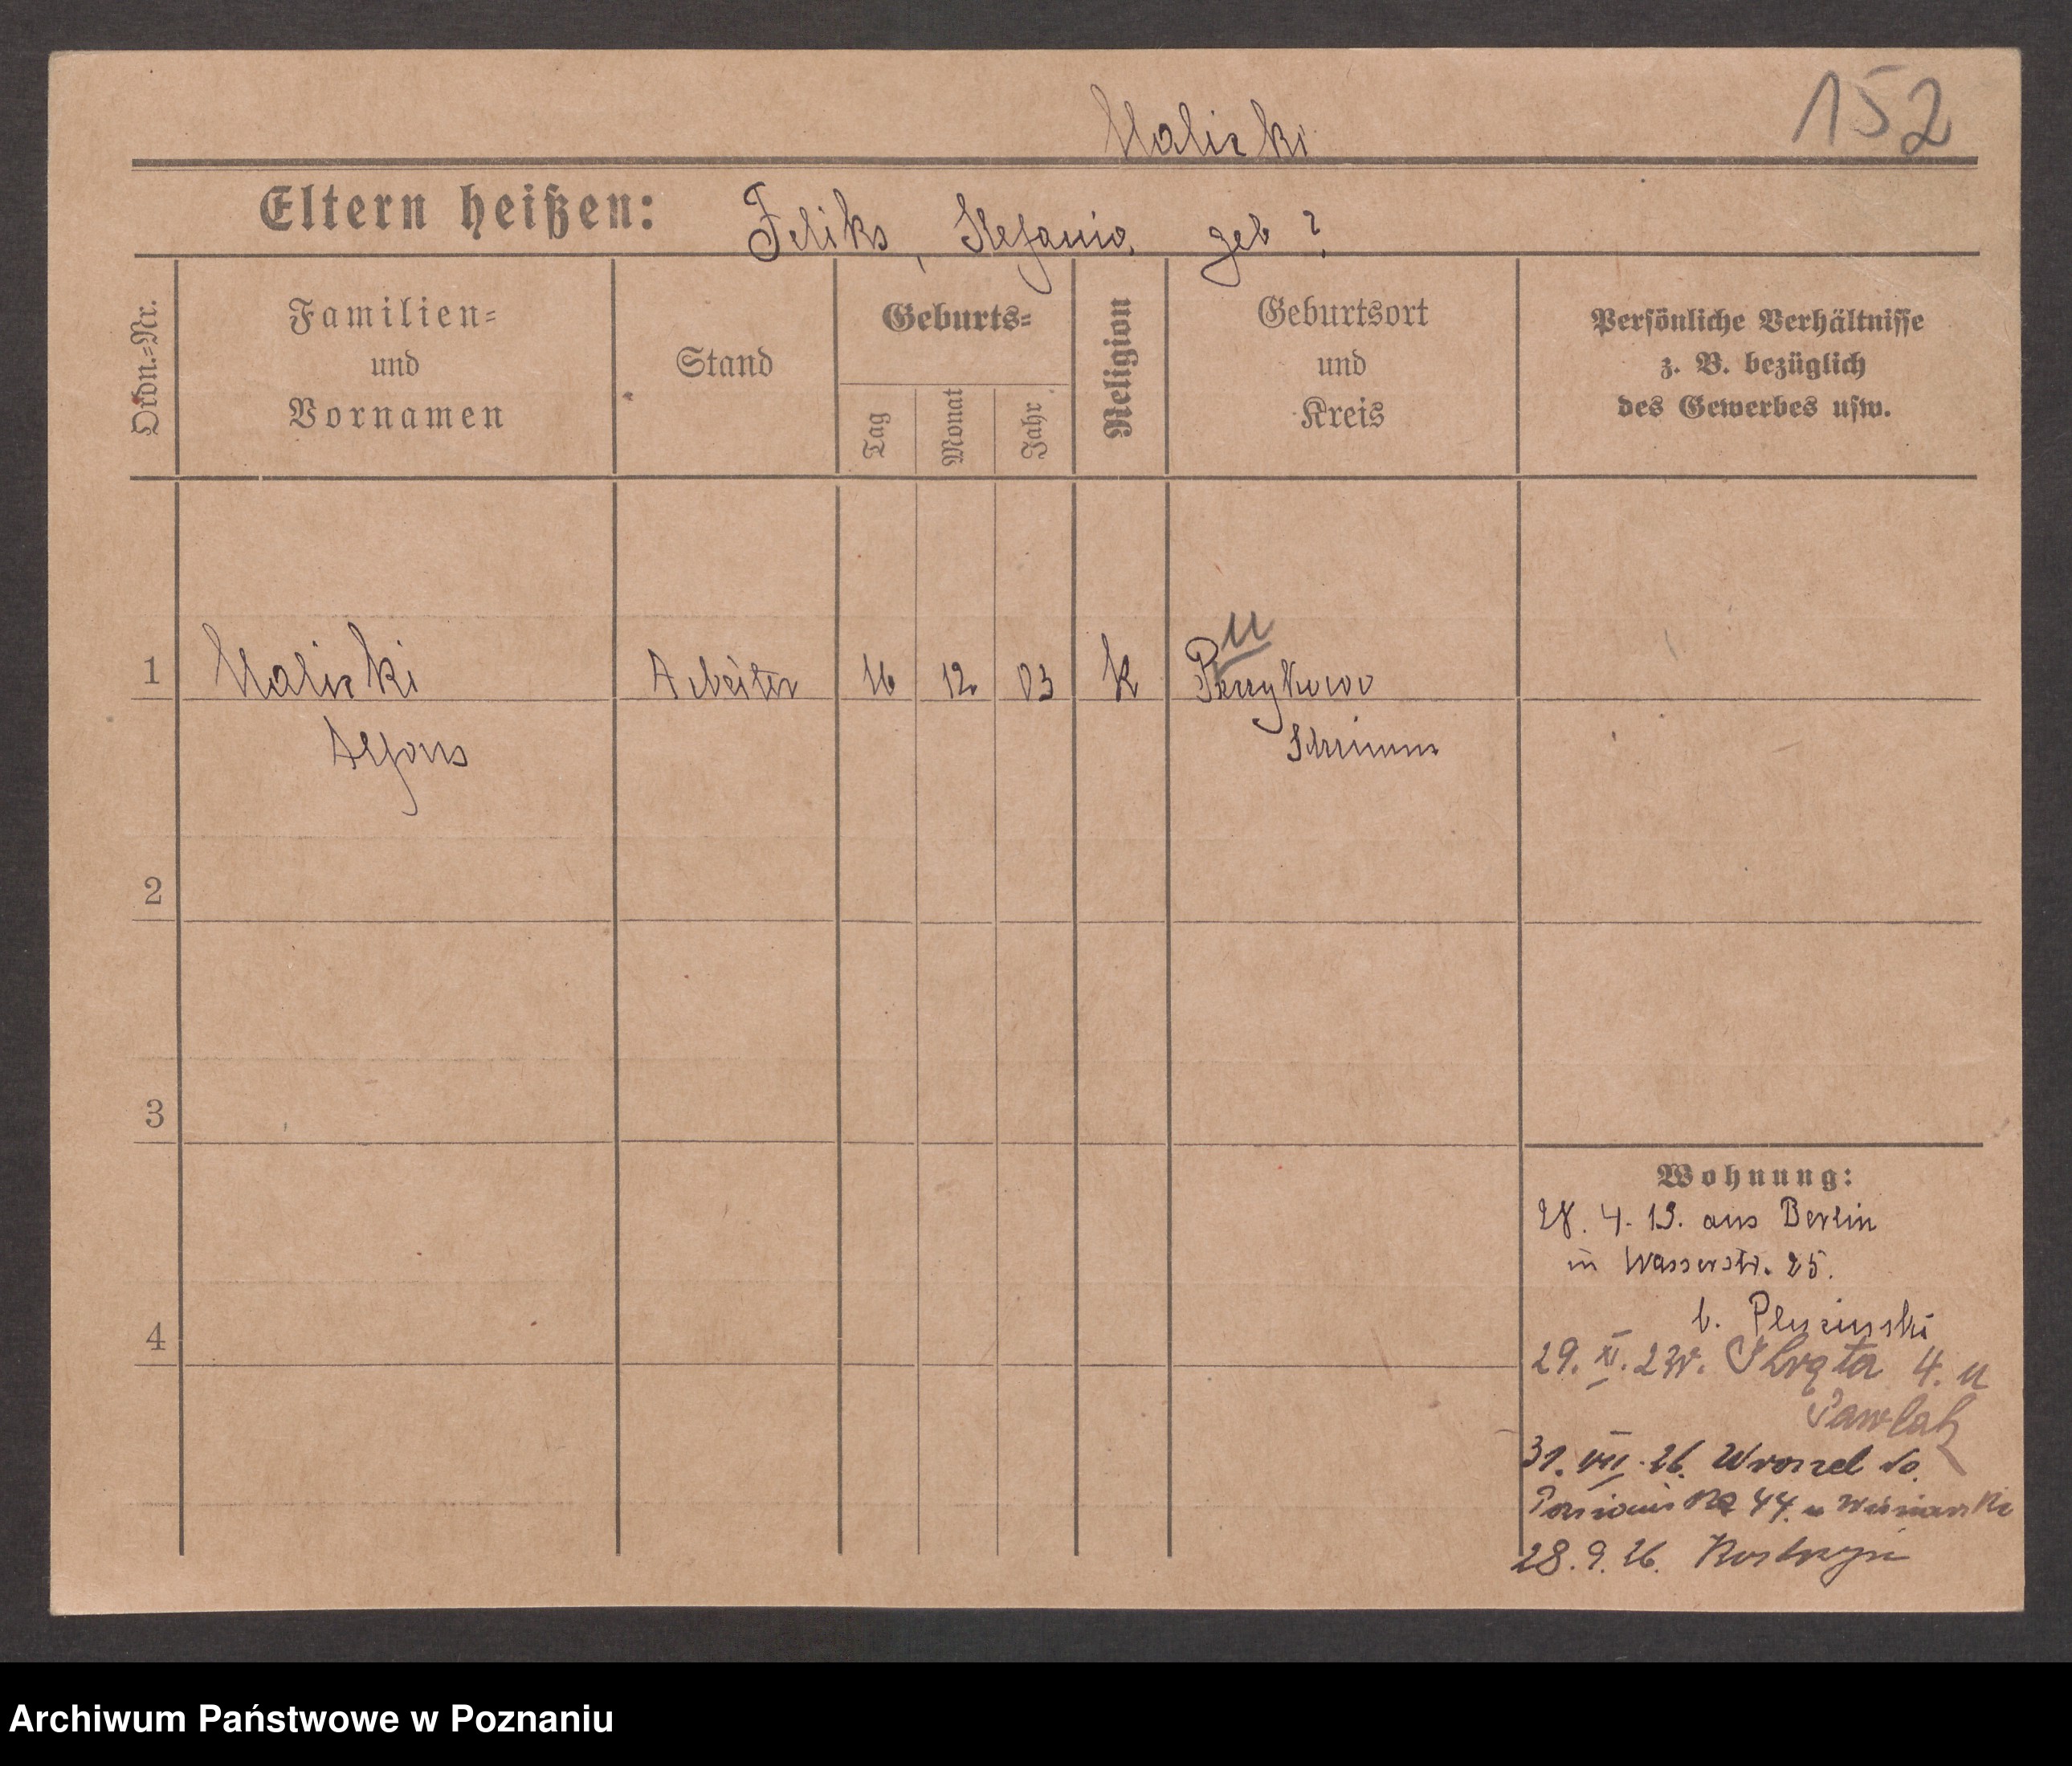 152
Malicki
Eltern heißen: Feliks, Stefania, geb ?
Ordn.=Nr.
Familien=
und
Vornamen
Stand
Geburts=
Tag
Monat
Jahr
Religion
Geburtsort
und
Kreis
Persönliche Verhältnisse
z. B. bezüglich
des Gewerbes usw.
u
1 Malicki Arbeiter 16 12 03 K
Alfons Schrimm
2
3
4
Wohnung:
28. 4. 19. aus Berlin
in Wasserstr. 25.
b. Pluzinski
29. XI. 23r. 4. u
Pawlak
31. VIII. 26.
44. u
28. 9. 26. Kostrzyn
Archiwum Państwowe w Poznaniu